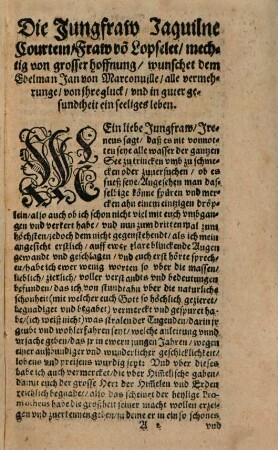 Die Jungfraw Jaquilne
Courtein/Fraw võ Lopselet/mech-
tig von grosser hoffnung/ wunschet dem
Edelman Jan von Marconuille/alle vermeh-
runge/von ihre gluck/ vnd in guter ge-
sundtheit ein seeliges leben.
MEin liebe Jungfraw/ Jre-
neus sagt/ daß es nit vonnö-
ten seye alle wasser der gantzen
See zu trincken vmb zu schme-
cken oder zuuersuchen/ ob es
suess seye/ Angesehen man das-
selbige könne spüren vnd mer-
cken ahn einem eintzigen dröp-
lein/ also auch ob ich schon nicht viel mit euch vmbgan-
gen vnd verkert habe/ vnd nun zum dritten mal zum
höchsten/ jedoch dem nicht gegenstehendt/ als ich mein
angesicht erstlich/ auff ewre klare blinckende Augen
gewandt vnd geschlagen/ vnd euch erst hörte sprech-
en/ habe ich ewer wenig worten so vber die massen
lieblich/ zierlich/ voller verstandts vnd bedeutungen
befunden/ das ich von stundahn vber die naturlichs
schonheit (mit welcher euch Gott so höchlich gezieret/
begnadiget vnd begabet) vermerckt vnd gespurt ha-
be/ (ich weiß nicht) was stralen der Tugenden/ darin jr
geubt vnd wohlerfahren seyt/ welche anleitung vnnd
vrsache geben/ das jr in ewern jungen Jahren/ wegen
einer außbundiger vnd wunderlicher geschicklichkeit/
lobens vnd preisens wurdig seyt. Vnd vber dieses
habe ich auch vermercket/ die vber Himlische gaben/
damit euch der grosse Herr der Himmelen vnd Erden
reichlich begnadet/ also das scheinet der heylige Pro-
motheus habe die große seiner macht wollen erzei-
gen vnd zuerkennen geben/ in deme er in ein so schones
A 2 vnd